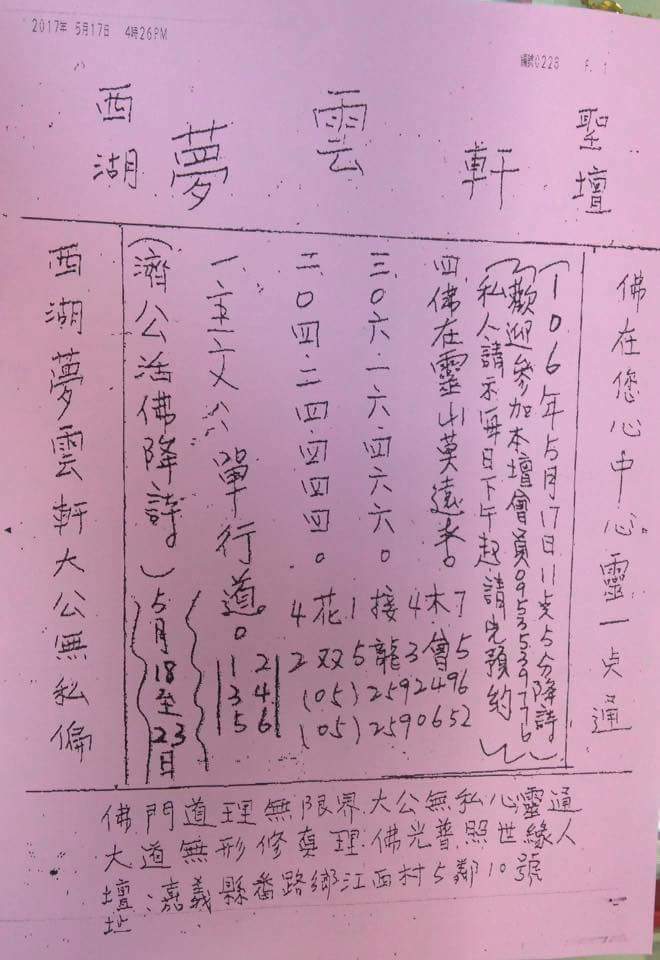 2017年 5月17日 4時26PM
編號0228 P. 1
西湖 夢雲軒 聖壇
佛在您心中心靈一点通
(106年5月17日11点5分降詩)
(歡迎參加本壇會員0953539776)
私人請示每日下午起請先預約
四佛在靈山莫遠求。
三.0六.一六.四六六。
二.0四.二四.四四四。
一.主文八單行道。
4花1接4木7
2双5龍3會5
(05)2592496
(05)2590652
1 2
3 4
5 6
(濟公活佛降詩)5月18至23日
西湖夢雲軒大公無私偏
佛門道理無限界大公無私心靈通
大道無形修真理佛光普照世緣人
壇址:嘉義縣番路鄉江西村5鄰10號